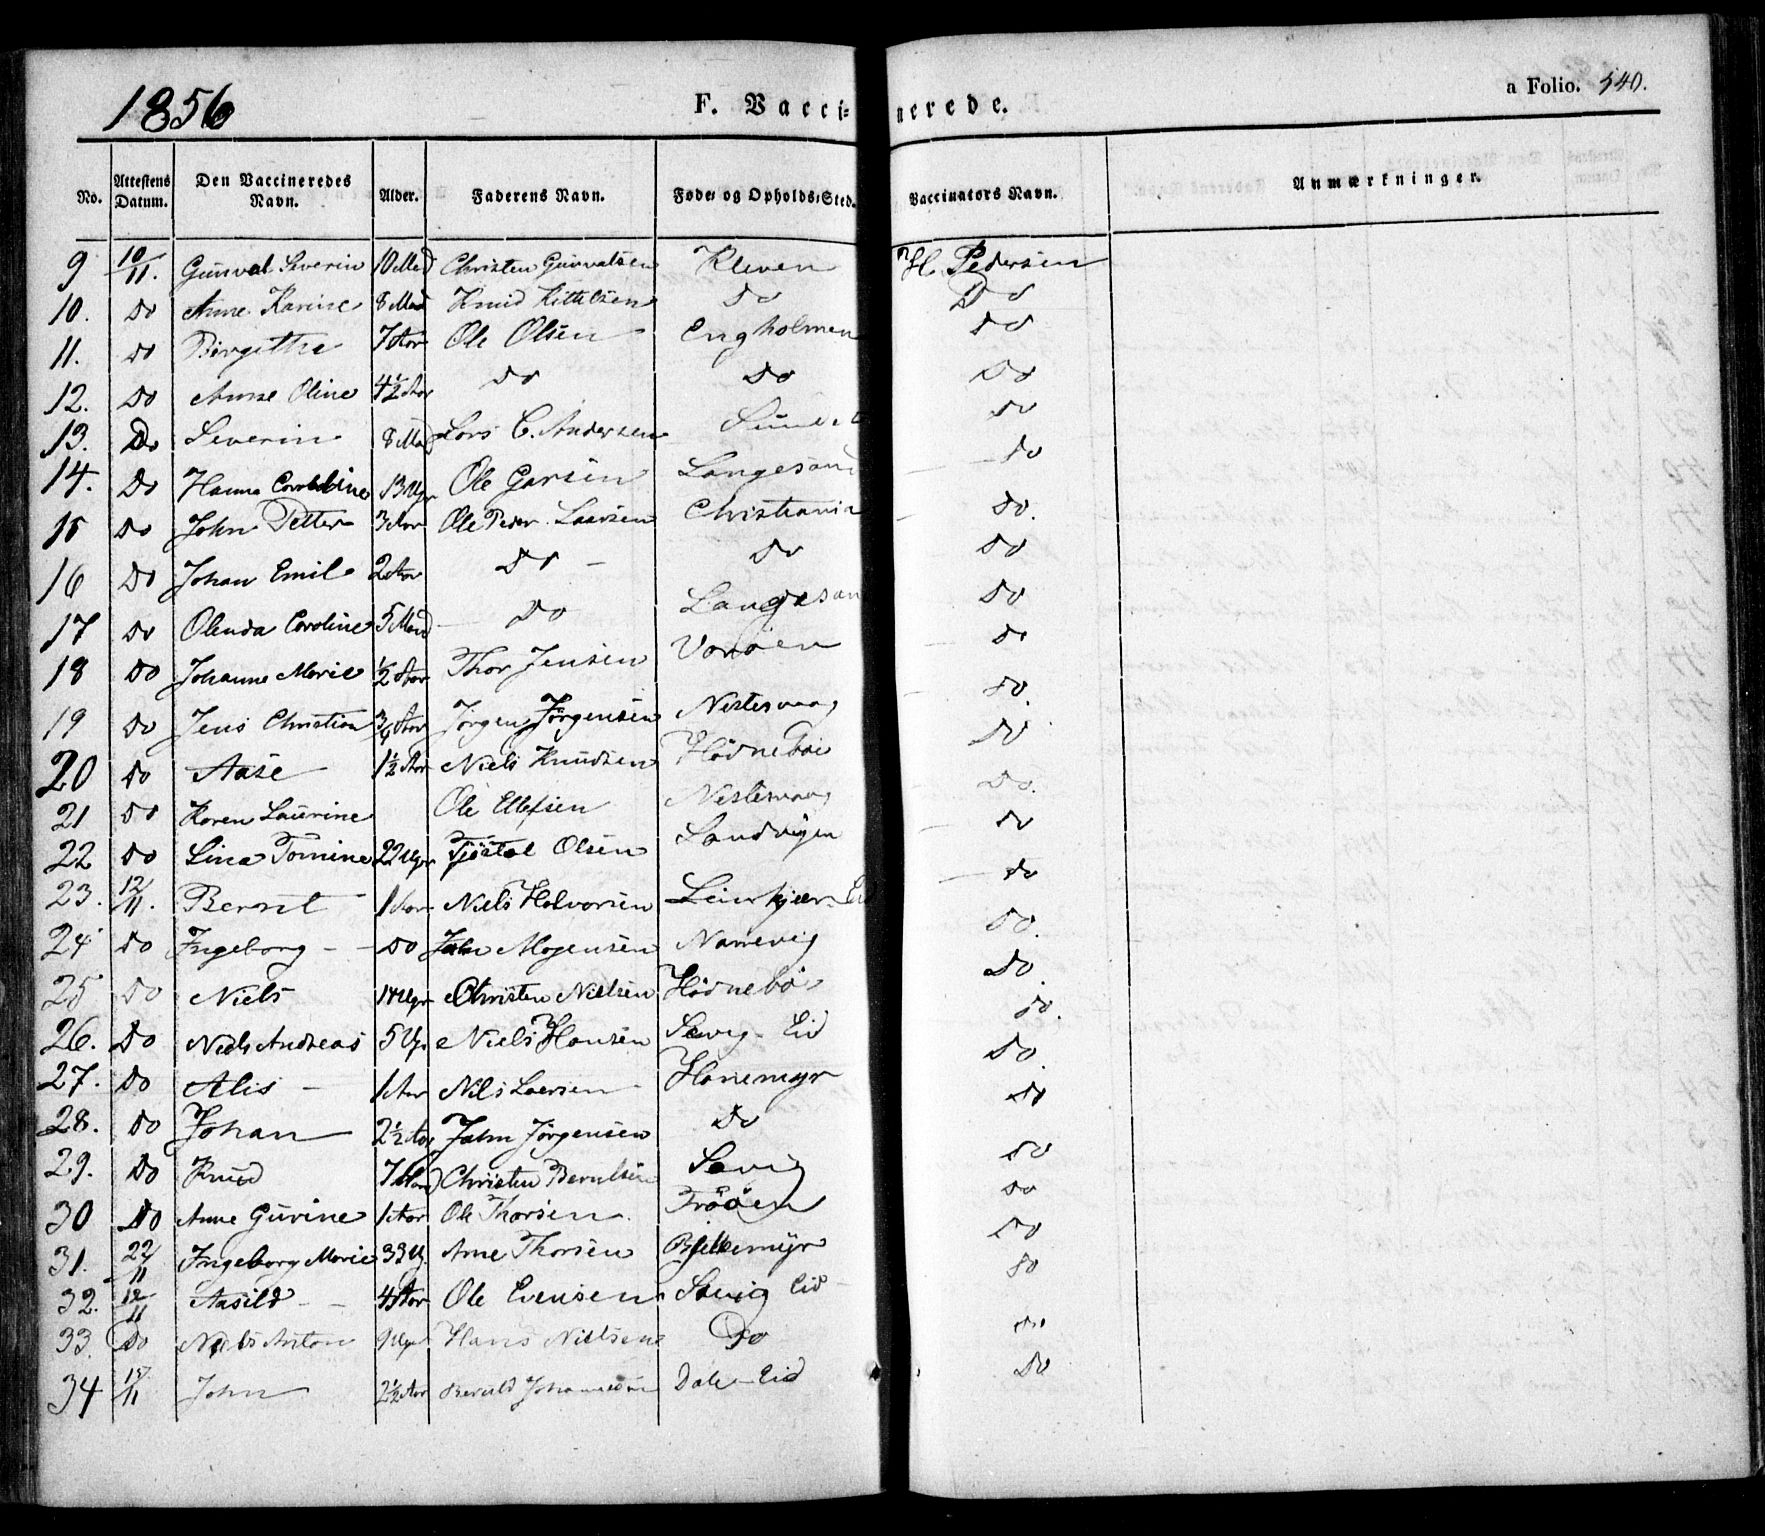 1856
F. Vacci-nerede.
a Folio. 540.
No. Attestens Datum. Den Vaccineredes Navn. Alder. Faderens Navn. Føde- og Opholds-Sted. Vaccinators Navn. Anmærkninger.
9 10/11. Gunval Severin 10 Mad Christen Gunvalsen Kleven H. Pedersen
10. Do Anne Karine 8 Mad Knud Kittelsen Do Do
11. Do Birgitthe 7 Aar Ole Olsen Engholmen Do
12. Do Anne Oline 4½ Aar Do Do Do
13. Do Severin 8 Mad Lars C. Andersen Do
14. Do Hanna 13 Ugr Ole Garsen Langesand Do
15 Do John Petter 3 Aar Ole Peder Laarsen Christiania Do.
16 Do Johan Emil 2 Aar Do - Do Do
17 Do Olenda Caroline 5 Mand Do Langesan Do
18 Do Johanne Marie ½ Aar Thor Jensen Voraøen Do
19 Do Jens Christian ¾ Aar Jörgen Jörgensen Nestesvaag Do.
20 Do Aase 1½ Aar Niels Knudsen Hödnebøe Do
21 Do Karen Laurine Ole Ellefsen Nestesvaag Do.
22 Do Lina Tomine 22 Ugr Tjöstol Olsen Sandvigen Do
23. 12/11. Bernt 1 Aar Niels Halvorsen Leirkjær-Eid Do
24 Do Ingeborg - Do John Mogensen Narrevig Do.
25 Do Niels 14 Ugr Christen Nielsen Hödnebø Do.
26. Do Niels Andreas 5 Ugr Niels Hansen Savig - Eid Do.
27. Do Alis - 1 Aar Nils Laersen Hanemyr Do.
28. Do Johan 2½ Aar Jahn Jörgensen Do Do
29. Do Knud 7 Mand Christen Berulsen Savig Do
30 Do Anne Gurine 1 Aar Ole Thorsen Tröøen Do
31. 22/11 Ingeborg Marie 33 U. Arne Thorsen Do
32. 12/11 Aasild - 4 Aar Ole Evensen Savig Eid Do
33. Do Niels Anton 9 Ugr Hans Nielsen Do Do
34 John 2½ Aar Beruld Johannesen Dale - Eid Do